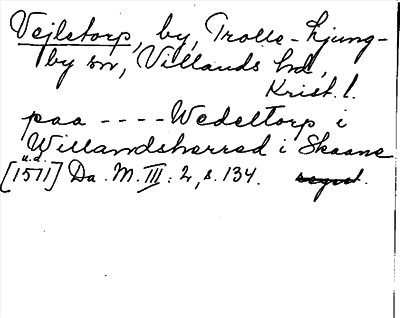 Vejletorp, by, Trolle-Ljung-
by sn, Villands hd,
Krist. l.
paa ---- Wedeltorp i
Willandsherred i Skaane
u.d.
[1571] Da. M. III: 2, s. 134.